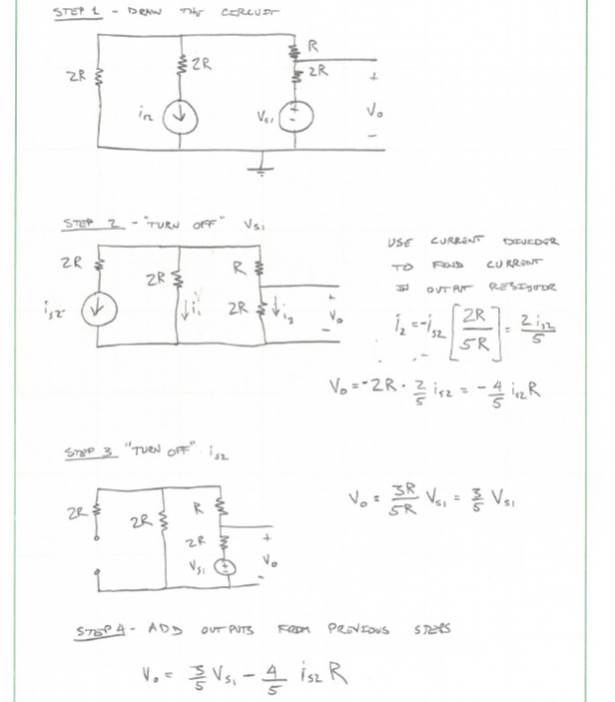 STEP 1 - DRAW THE CIRCUIT
2R
2R
R
2R
is2
Vs1
+
-
+
Vo
-
STEP 2 - "TURN OFF" Vs1
2R
2R
R
2R
is2
i1
i2
+
Vo
-
USE CURRENT DIVIDER
TO FIND CURRENT
IN OUTPUT RESISTOR
i2 = -is2 [2R / 5R] = 2 is2 / 5
Vo = -2R · 2/5 is2 = - 4/5 is2 R
STEP 3 "TURN OFF" is2
2R
2R
R
2R
Vs1
+
-
+
Vo
-
Vo = 3R/5R Vs1 = 3/5 Vs1
STEP 4 - ADD OUTPUTS FROM PREVIOUS STEPS
Vo = 3/5 Vs1 - 4/5 is2 R